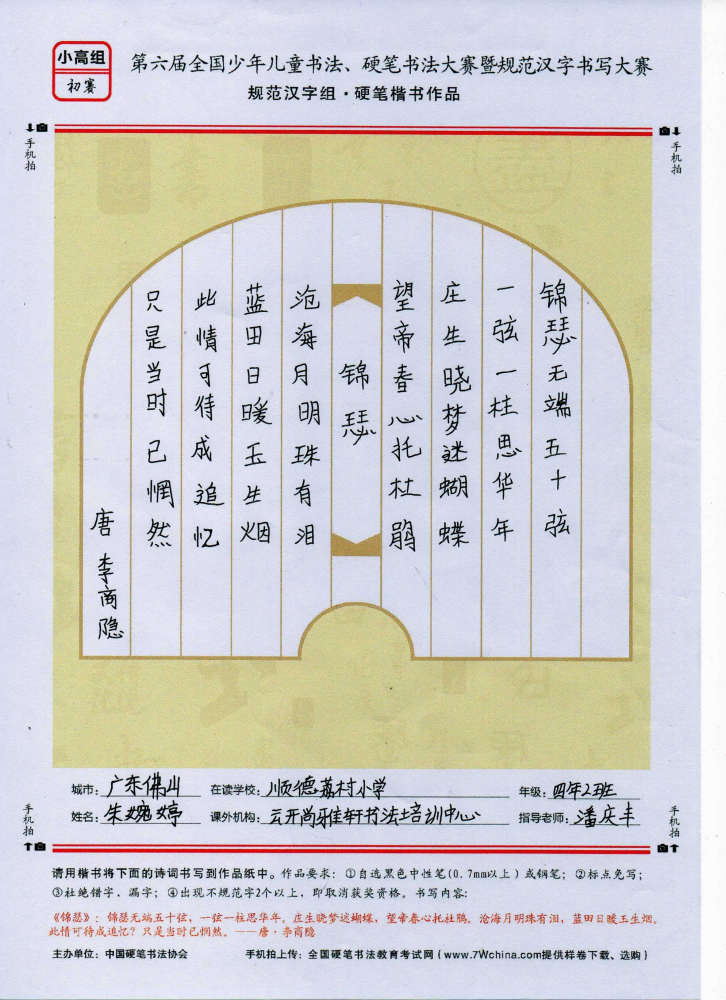 小高组
初赛
第六届全国少年儿童书法、硬笔书法大赛暨规范汉字书写大赛
规范汉字组·硬笔楷书作品
手机拍
手机拍
锦瑟无端五十弦
一弦一柱思华年
庄生晓梦迷蝴蝶
望帝春心托杜鹃
锦瑟
沧海月明珠有泪
蓝田日暖玉生烟
此情可待成追忆
只是当时已惘然
唐 李商隐
城市：广东佛山 在读学校：顺德荔村小学 年级：四年2班
姓名：朱婉婷 课外机构：云开尚雅轩书法培训中心 指导老师：潘庆丰
手机拍
手机拍
请用楷书将下面的诗词书写到作品纸中。作品要求：①自选黑色中性笔(0.7mm以上)或钢笔；②标点免写；
③杜绝错字、漏字；④出现不规范字2个以上，即取消获奖资格。书写内容：
《锦瑟》：锦瑟无端五十弦，一弦一柱思华年。庄生晓梦迷蝴蝶，望帝春心托杜鹃。沧海月明珠有泪，蓝田日暖玉生烟。
此情可待成追忆？只是当时已惘然。——唐·李商隐
主办单位：中国硬笔书法协会 手机拍上传：全国硬笔书法教育考试网（www.7Wchina.com提供样卷下载、选购）